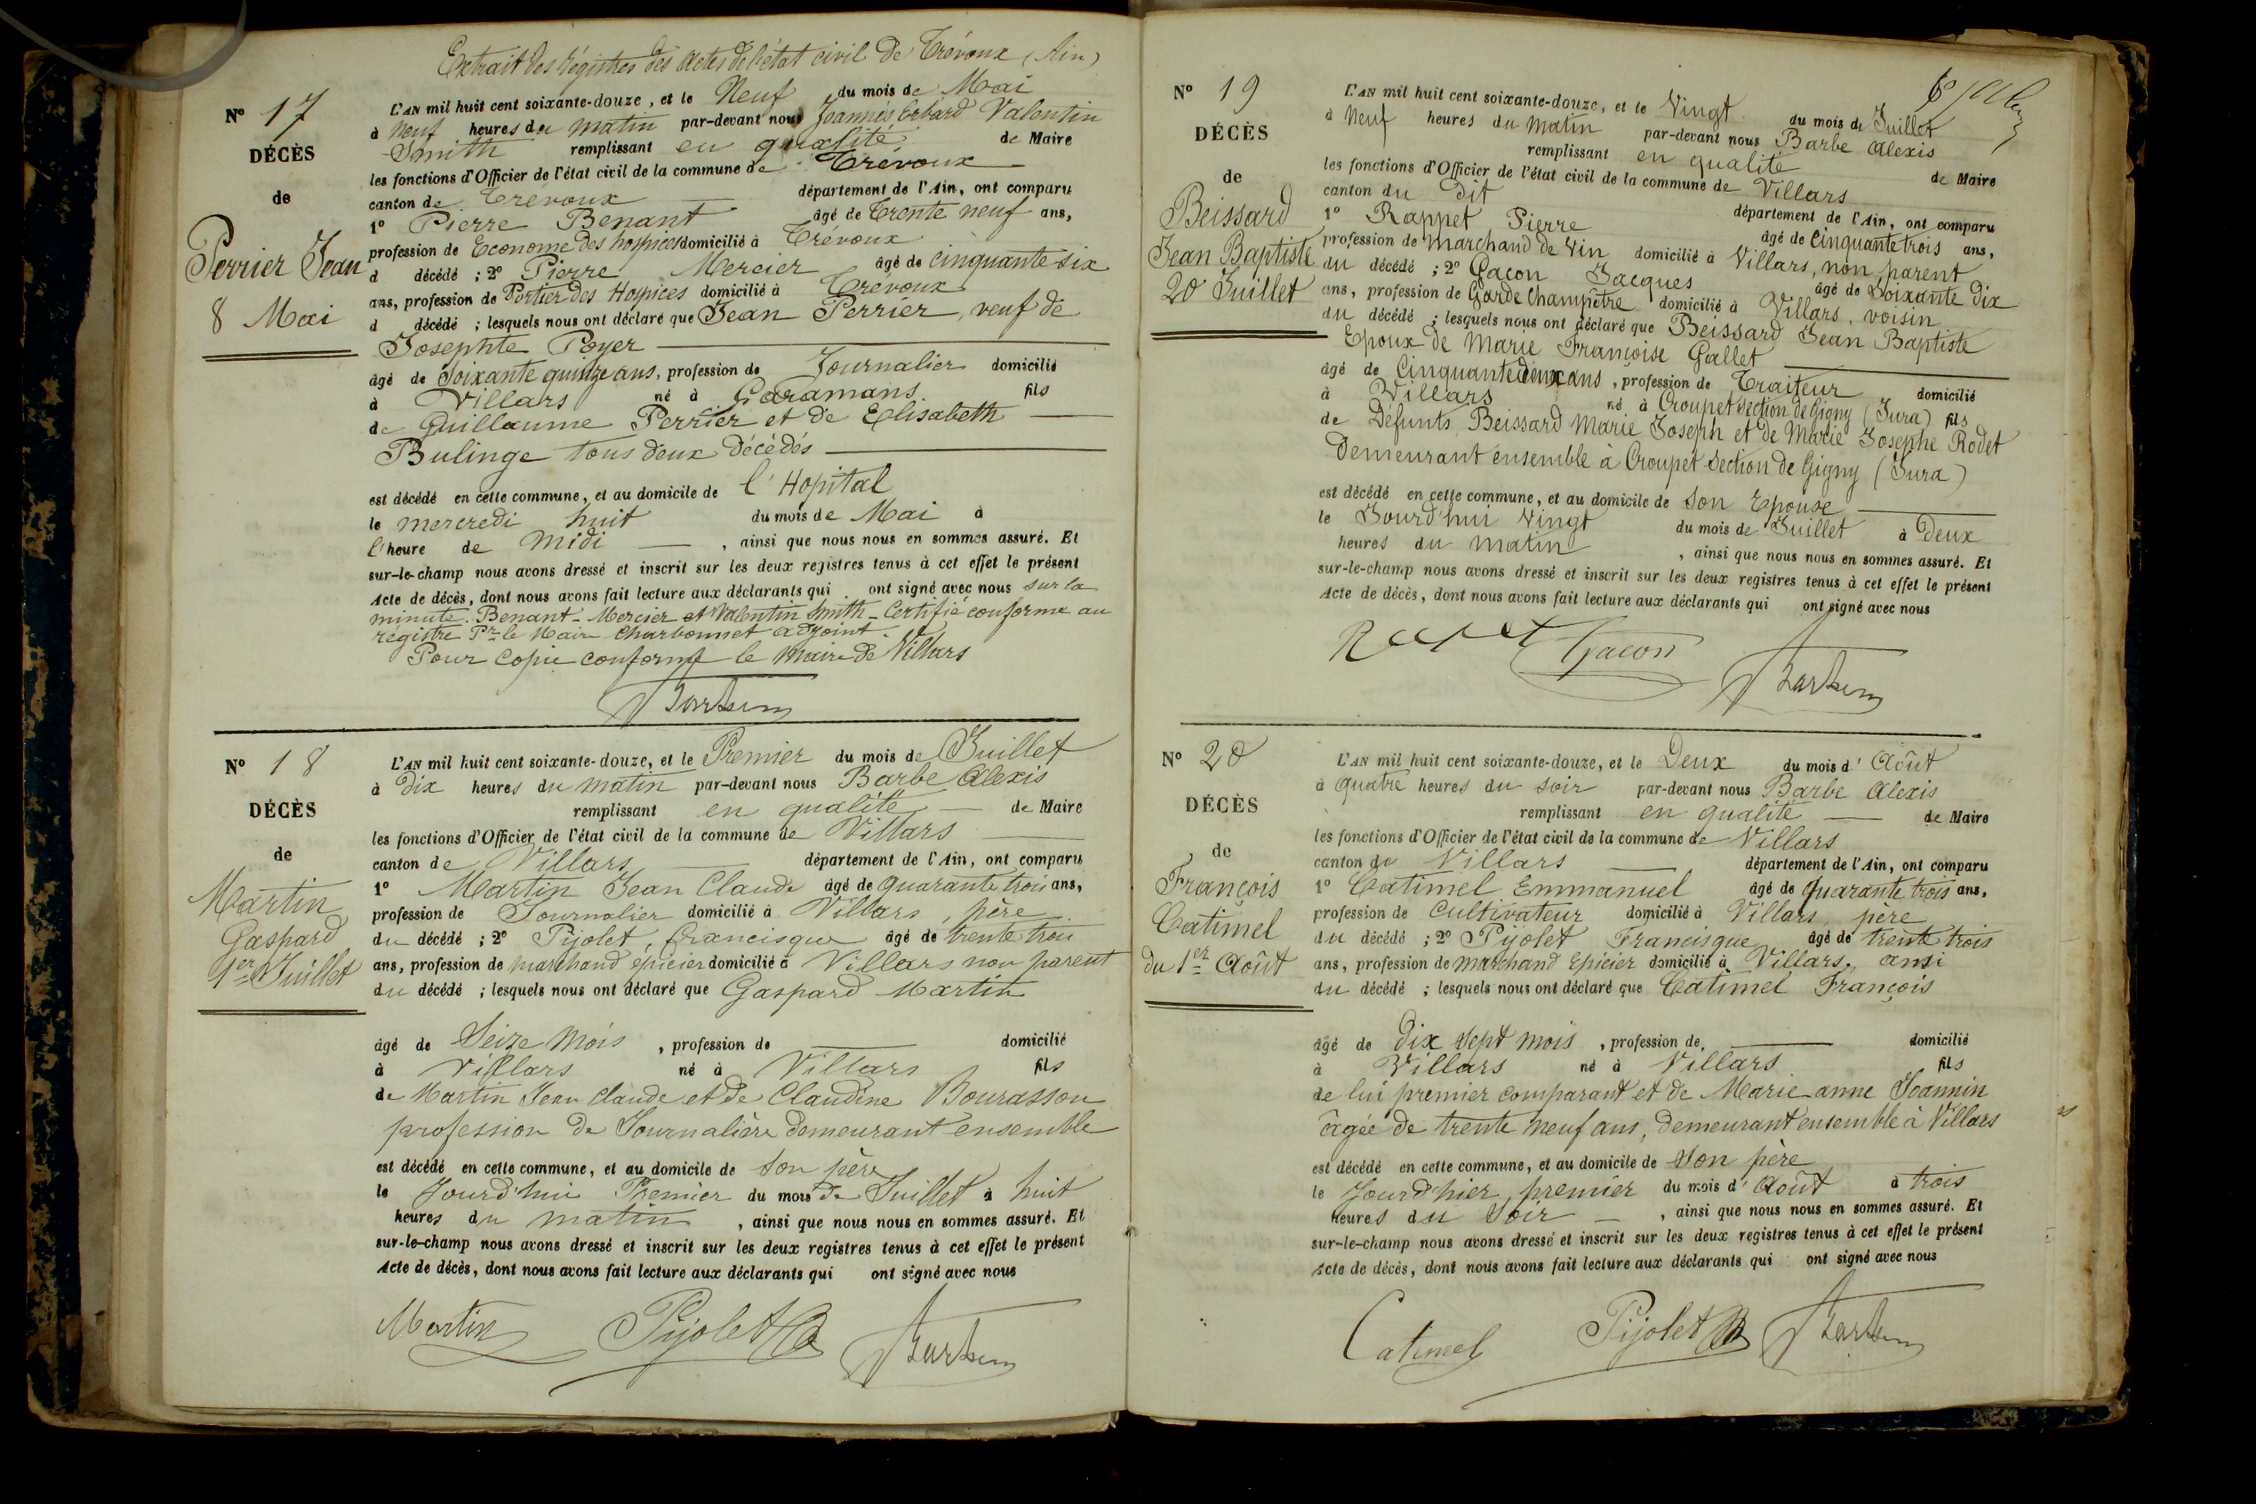 Extrait des Régistres des Actes de l'état civil de Trévoux (Ain)
N° 17
DÉCÈS
de
Perrier Jean
8 Mai
L'AN mil huit cent soixante-douze, et le Neuf du mois de Mai
à Neuf heures du matin par-devant nous Joannès Erhard Valentin
Smith remplissant en qualité de Maire
les fonctions d'Officier de l'état civil de la commune de Trévoux
canton de Trévoux département de l'Ain, ont comparu
1° Pierre Benant âgé de Trente neuf ans,
profession de Econome des hospices domicilié à Trévoux
d décédé ; 2° Pierre Mercier âgé de cinquante six
ans, profession de Portier des Hospices domicilié à Trévoux
d décédé ; lesquels nous ont déclaré que Jean Perrier, veuf de
Josephte Poyer
âgé de Soixante quinze ans, profession de Journalier domicilié
à Villars né à Garamans fils
de Guillaume Perrier et de Elisabeth
Bulinge tous deux décédés
est décédé en cette commune, et au domicile de l'Hopital
le mercredi huit du mois de Mai à
l'heure de Midi , ainsi que nous nous en sommes assuré. Et
sur-le-champ nous avons dressé et inscrit sur les deux registres tenus à cet effet le présent
Acte de décès, dont nous avons fait lecture aux déclarants qui ont signé avec nous sur la
minute. Benant - Mercier et Valentin Smith - Certifié conforme au
régistre Pr le Maire Charbonnet adjoint.
Pour Copie conforme le Maire de Villars
N° 18
DÉCÈS
de
Martin
Gaspard
1er Juillet
L'AN mil huit cent soixante-douze, et le Premier du mois de Juillet
à Dix heures du matin par-devant nous Barbe Alexis
remplissant en qualité de Maire
les fonctions d'Officier de l'état civil de la commune de Villars
canton de Villars département de l'Ain, ont comparu
1° Martin Jean Claude âgé de quarante trois ans,
profession de Journalier domicilié à Villars, père
du décédé ; 2° Pijolet, francisque âgé de trente trois
ans, profession de marchand épicier domicilié à Villars non parent
du décédé ; lesquels nous ont déclaré que Gaspard Martin
âgé de Seize Mois , profession de domicilié
à Villars né à Villars fils
de Martin Jean Claude et de Claudine Bourasson
profession de Journalière demeurant ensemble
est décédé en cette commune, et au domicile de Son père
le Jourd'hui Premier du mois de Juillet à huit
heures du matin , ainsi que nous nous en sommes assuré. Et
sur-le-champ nous avons dressé et inscrit sur les deux registres tenus à cet effet le présent
Acte de décès, dont nous avons fait lecture aux déclarants qui ont signé avec nous
Martin Pijolet
N° 19
DÉCÈS
de
Beissard
Jean Baptiste
20 Juillet
L'AN mil huit cent soixante-douze, et le Vingt du mois de Juillet
à Neuf heures du matin par-devant nous Barbe Alexis
remplissant en qualité de Maire
les fonctions d'Officier de l'état civil de la commune de Villars
canton du Dit département de l'Ain, ont comparu
1° Rappet Pierre âgé de Cinquante trois ans,
profession de Marchand de Vin domicilié à Villars, non parent
du décédé ; 2° Gacon Jacques âgé de Soixante Dix
ans, profession de Garde Champêtre domicilié à Villars. voisin
du décédé ; lesquels nous ont déclaré que Beissard Jean Baptiste
Epoux de Marie Françoise Gallet
âgé de Cinquante deux ans , profession de Traiteur domicilié
à Villars né à Croupet section de Gigny (Jura) fils
de Défunts Beissard Marie Joseph et de Marie Josephe Rodet
Demeurant ensemble a Croupet section de Gigny (Jura)
est décédé en cette commune, et au domicile de Son Epouse
le Jourd'hui Vingt du mois de Juillet à Deux
heures du matin , ainsi que nous nous en sommes assuré. Et
sur-le-champ nous avons dressé et inscrit sur les deux registres tenus à cet effet le présent
Acte de décès, dont nous avons fait lecture aux déclarants qui ont signé avec nous
Gacon
N° 20
DÉCÈS
de
François
Catimel
du 1er Août
L'AN mil huit cent soixante-douze, et le Deux du mois d'Août
à quatre heures du soir par-devant nous Barbe Alexis
remplissant en qualité de Maire
les fonctions d'Officier de l'état civil de la commune de Villars
canton de Villars département de l'Ain, ont comparu
1° Catimel Emmanuel âgé de quarante trois ans,
profession de Cultivateur domicilié à Villars, père
du décédé ; 2° Pijolet Francisque âgé de trente trois
ans, profession de Marchand Epicier domicilié à Villars, ami
du décédé ; lesquels nous ont déclaré que Catimel François
âgé de Dix sept mois , profession de domicilié
à Villars né à Villars fils
de lui premier comparant et de Marie anne Joannin
âgée de trente neuf ans, demeurant ensemble à Villars
est décédé en cette commune, et au domicile de Son père
le Jourd'hier premier du mois d'Août à trois
heures du Soir , ainsi que nous nous en sommes assuré. Et
sur-le-champ nous avons dressé et inscrit sur les deux registres tenus à cet effet le présent
Acte de décès, dont nous avons fait lecture aux déclarants qui ont signé avec nous
Catimel Pijolet